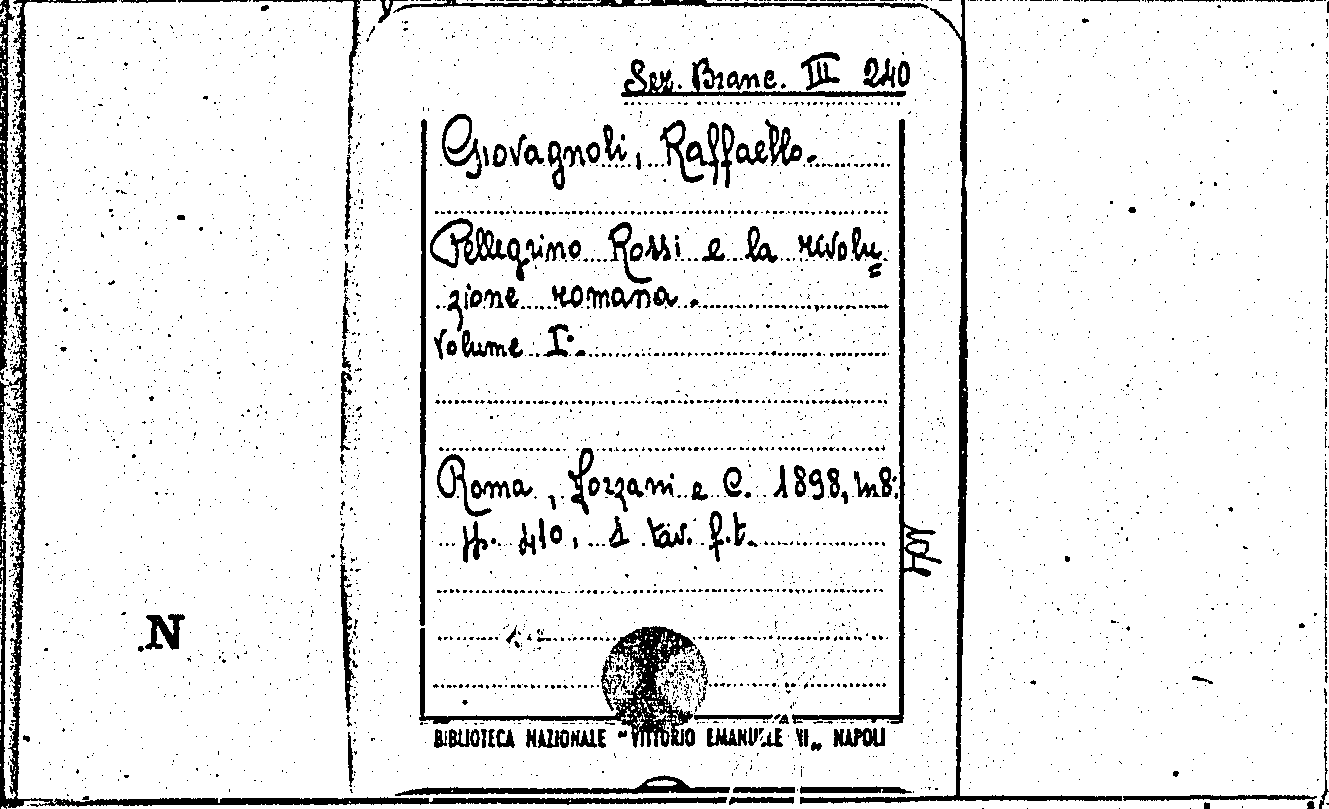 Sez. Branc. III 240
Giovagnoli, Raffaello.
Pellegrino Rossi e la rivolu=
zione romana.
Volume I°.
Roma, Forzani e C. 1898, in 8°.
pp. 410, 1 tav. f.t.
N
BIBLIOTECA NAZIONALE "VITTORIO EMANUELE VI„ NAPOLI